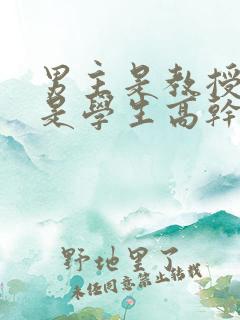 男主是教授
是學生高幹
野地里了
未经同意禁止转载